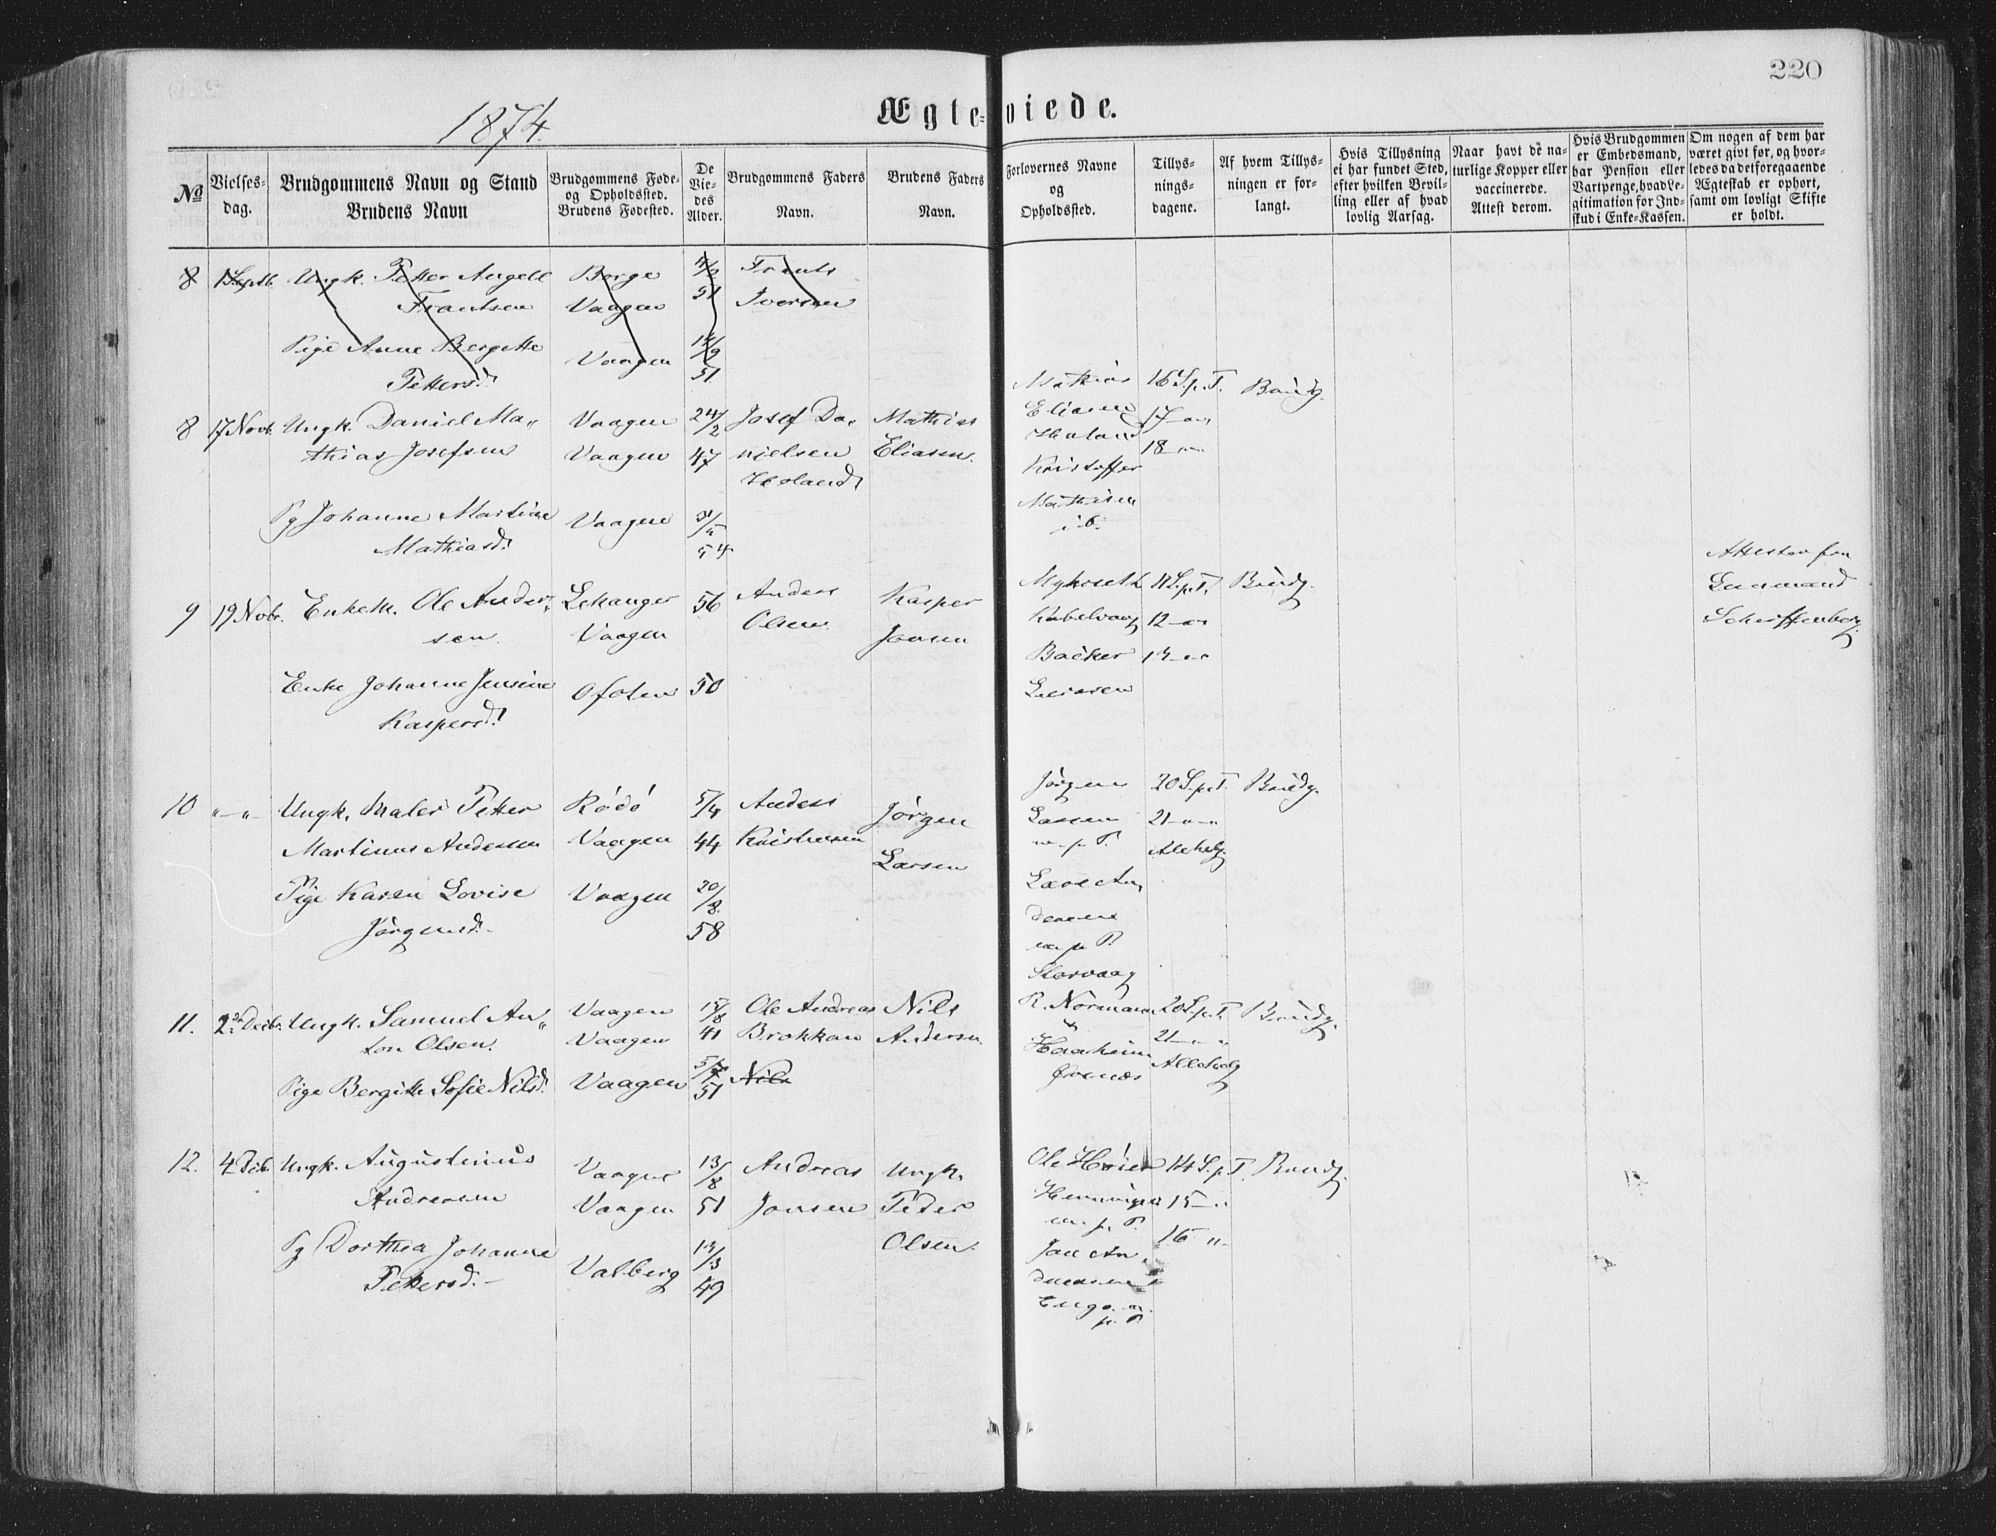 220
1874.
Ægte-viede.
№
Vielses-
dag.
Brudgommens Navn og Stand
Brudens Navn
Brudgommens Føde-
og Opholdssted.
Brudens Fødested.
De
Vie-
des
Alder.
Brudgommens Faders
Navn.
Brudens Faders
Navn.
Forlovernes Navne
og
Opholdssted.
Tillys-
nings-
dagene.
Af hvem Tillys-
ningen er for-
langt.
Hvis Tillysning
ei har fundet Sted,
efter hvilken Bevil-
ling eller af hvad
lovlig Aarsag.
Naar havt de na-
turlige Kopper eller
vaccinerede.
Attest derom.
Hvis Brudgommen
er Embedsmand,
har Pension eller
Vartpenge, hvad Le-
gitimation for Ind-
skud i Enke-Kassen.
Om nogen af dem har
været givt før, og hvor-
ledes da det foregaaende
Ægteskab er ophørt,
samt om lovligt Skifte
er holdt.
8 Septb. Ungk. Petter Angell Borge Frants
Frantsen Vaagen 51 Iversen
Pige Anne Bergitte Vaagen
Petersd. 51
8 17 Novb. Ungk. Daniel Ma- Vaagen 24/2 Josef Da- Mathias
thias Josefsen Vaagen 47 nielsen Eliasen.
Holand
Pg Johanne Martine Vaagen
Mathiasd. 54
Mathias 16 S.p.T. Brudg.
Eliasen 17
Holand 18
Kristoffer
Mathisen
i b.
9 19 Novb. Enkem. Ole Ander- Lekanger 56 Anders Kasper
sen. Vaagen Olsen Jonsen
Enke Johanne Jensine Ofoten 50
Kaspersd.
11 S.p.T. Brudg.
Kabelvaag 12
Backer 13
Attest fra
Lensmand
Schiffenborg.
10 Ungk. Maler Petter Rødø 5/4 Anders Jørgen
Martinus Andersen Vaagen 44 Kristensen Larsen
Pige Karen Lovise Vaagen 20/8
Jørgensd. 58
Jørgen 20 S.p.T. Brudg.
Larsen 21
Allehelg.
Storvaag
11. 2 Decbr. Ungk. Samuel An- Vaagen 15/8 Ole Andreas Nils
ton Olsen. Vaagen 41 Brokkan Andersen.
Pige Bergitte Sofie Nilsd. Vaagen 51 Nils
R. Normann 20 S.p.T. Brudg.
21
Allehelg
12. 4 Decb. Ungk. Augustinus Vaagen 13/8 Andreas Ungk.
Andreasen Vaagen 51 Jonsen Peder
Pg Dorthea Johanne Valberg 13/3 Olsen.
Pettersd. 49
Ole Høier 14 S.p.T. Brudg.
15
16
m. p. P.